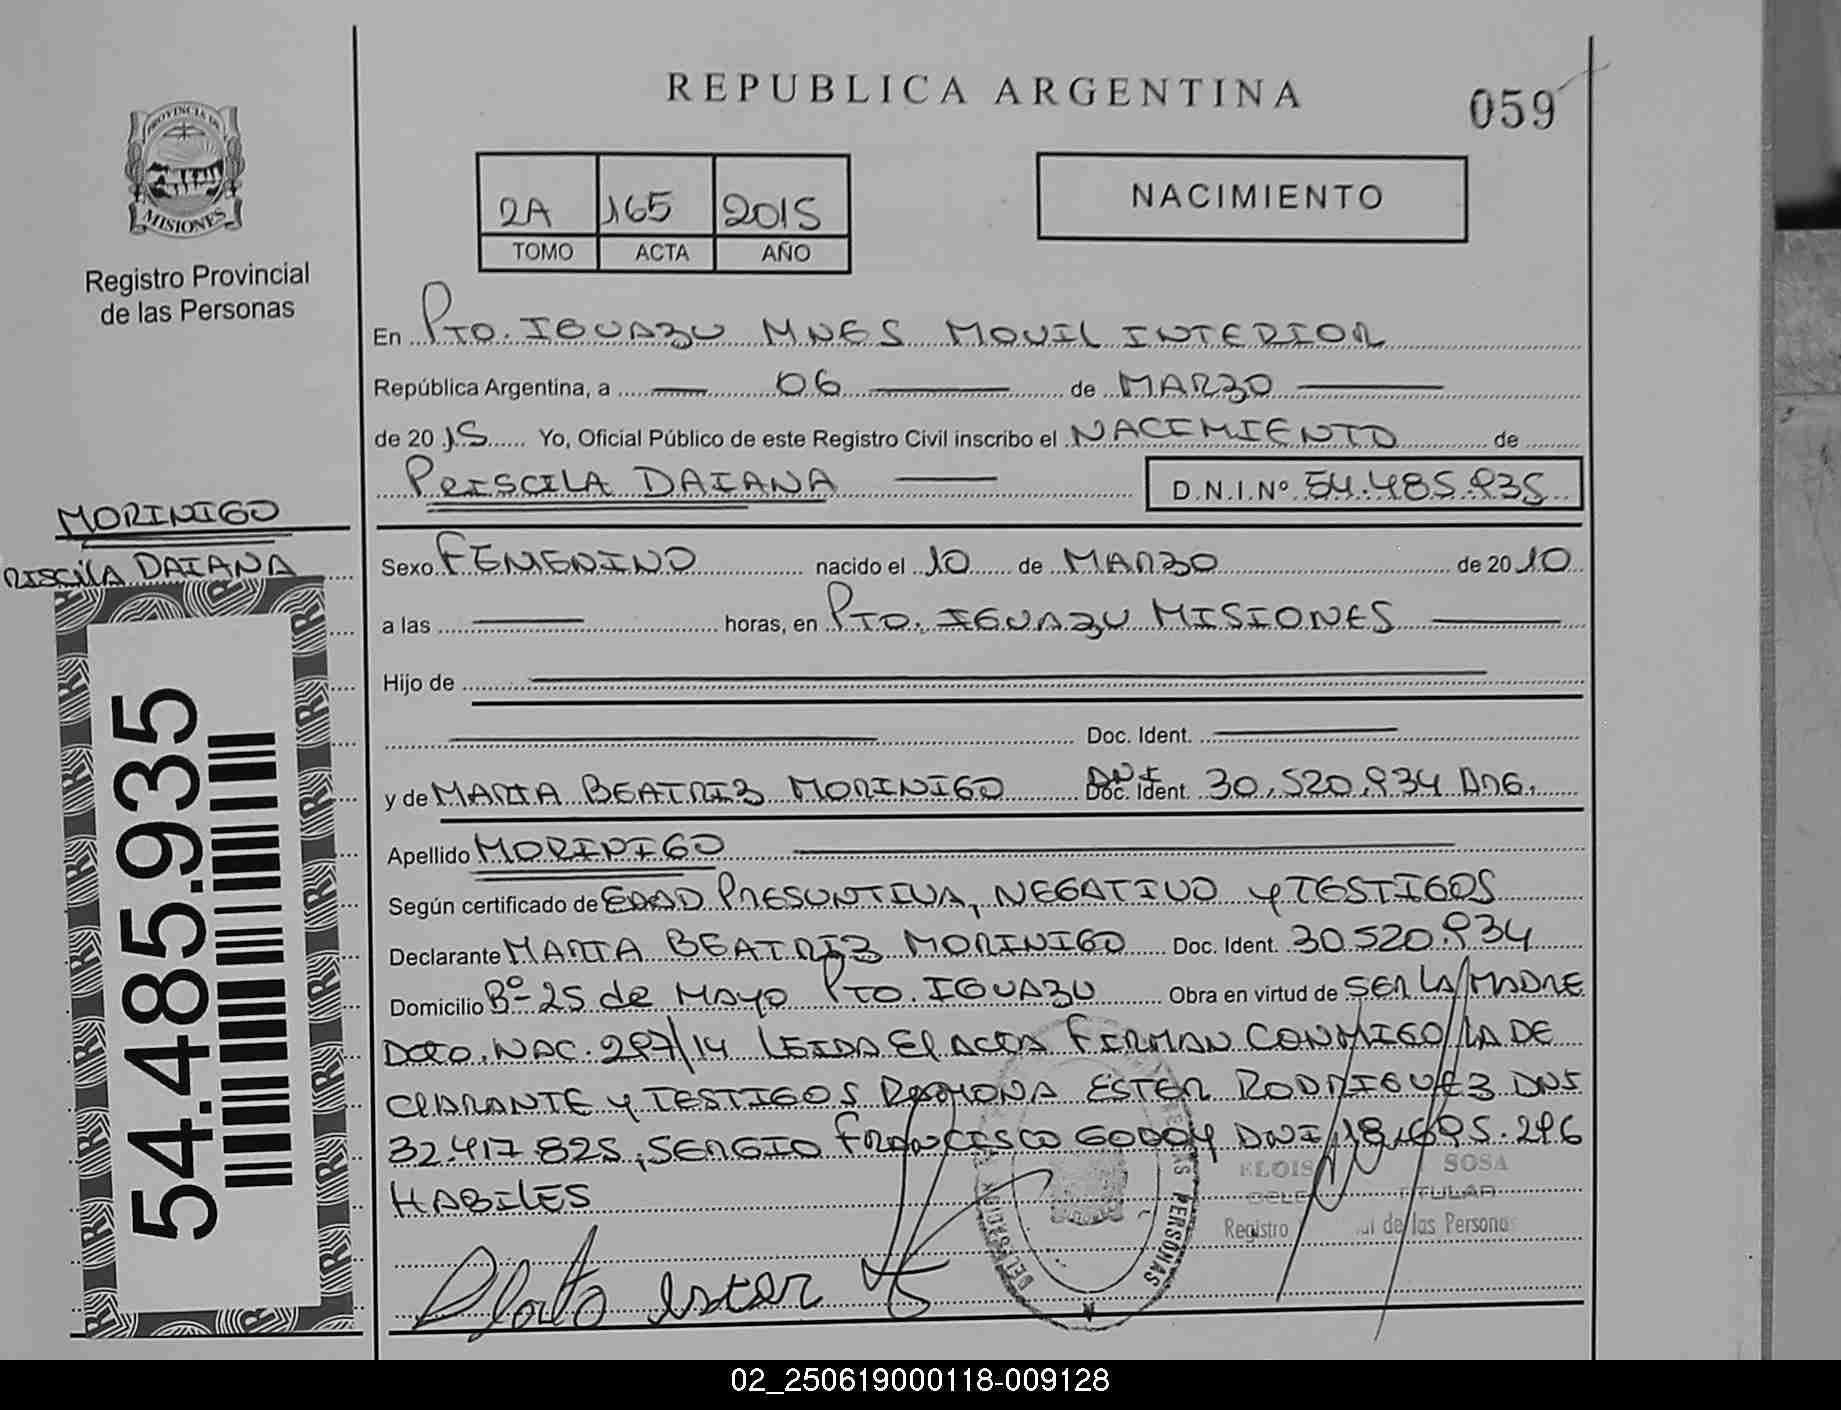 REPUBLICA ARGENTINA
059
PROVINCIA DE
MISIONES
Registro Provincial
de las Personas
2A 165 2015
TOMO ACTA AÑO
NACIMIENTO
En PTO. IGUAZU MNES MOVIL INTERIOR
República Argentina, a 06 de MARZO
de 2015 Yo, Oficial Público de este Registro Civil inscribo el NACIMIENTO de
PRISCILA DAIANA D.N.I.Nº 54.485.935
MORINIGO
RISCILA DAIANA
54.485.935
Sexo FEMENINO nacido el 10 de MARZO de 2010
a las horas, en PTO. IGUAZU MISIONES
Hijo de
Doc. Ident.
y de MARTA BEATRIZ MORINIGO DNI Doc. Ident. 30.520.934 ARG.
Apellido MORINIGO
Según certificado de EDAD PRESUNTIVA, NEGATIVO y TESTIGOS
Declarante MARTA BEATRIZ MORINIGO Doc. Ident. 30520.934
Domicilio Bº 25 de MAYO PTO. IGUAZU Obra en virtud de SER LA MADRE
DCTO. NAC. 297/14 LEIDA El ACTA FIRMAN CONMIGO LA DE
CLARANTE y TESTIGOS RAMONA ESTER RODRIGUEZ DNI
32.417.825, SERGIO FRANCISCO GODOY DNI 18.695.296
HABILES
ELOISA SOSA
TITULAR
Registro de las Personas
DEL
PERSONAS
Ester
02_250619000118-009128